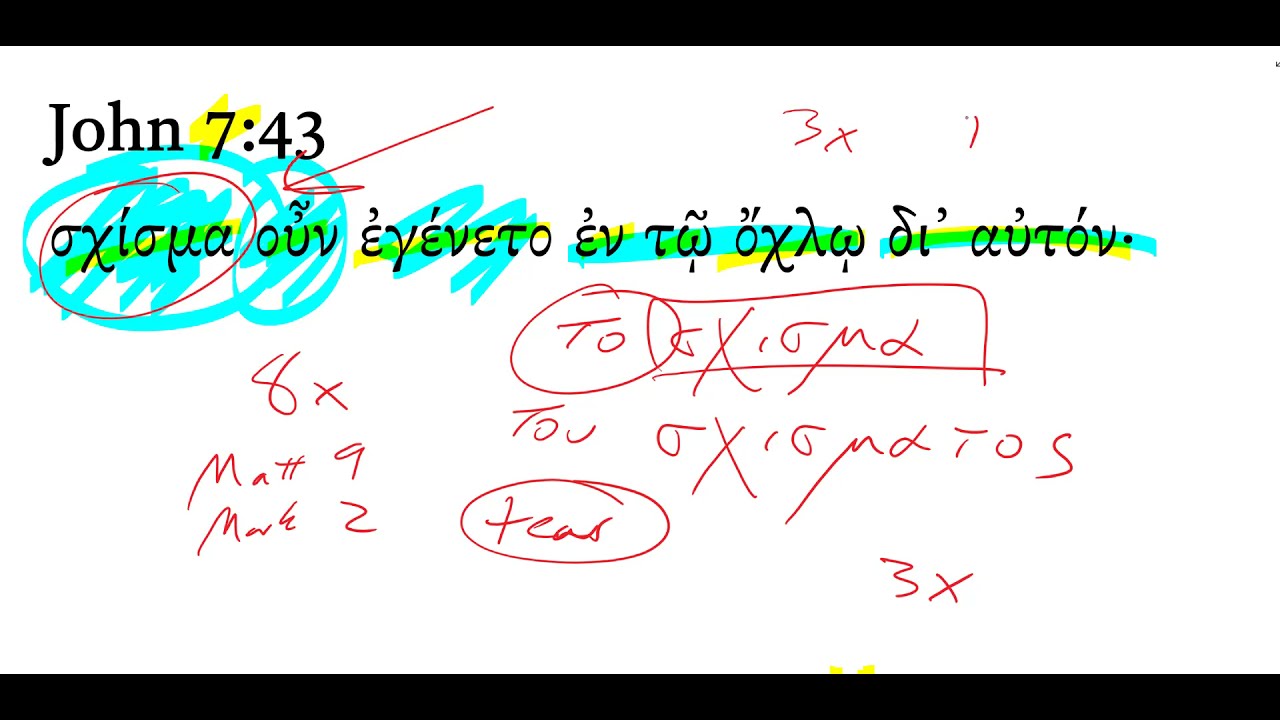 John 7:43
3x
σχίσμα οὖν ἐγένετο ἐν τῷ ὄχλῳ δι᾽ αὐτόν·
το σχισμα
8x
του σχισματος
Matt 9
Mark 2
tear
3x